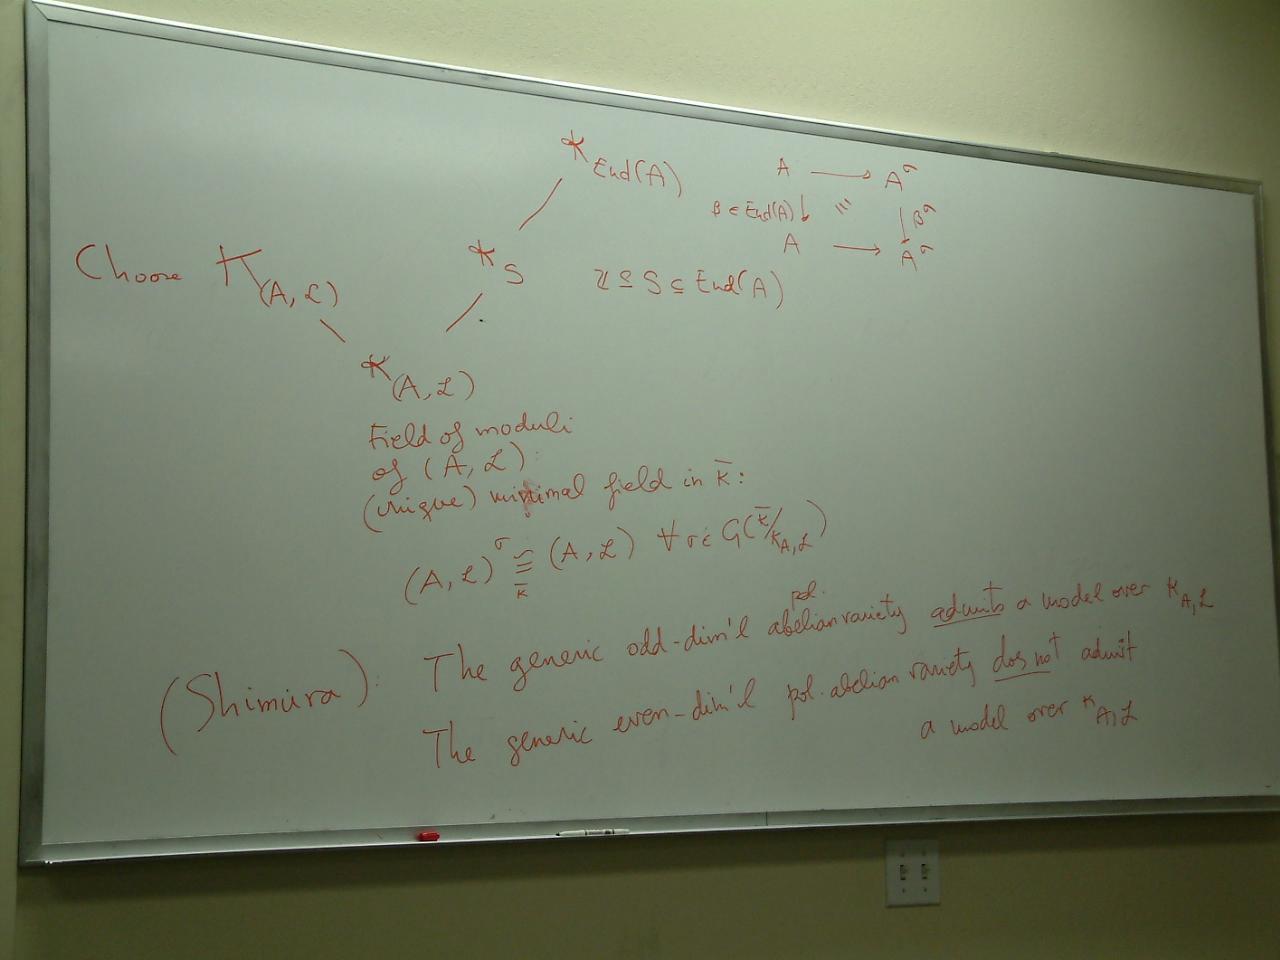 k_{End(A)}
A ⟶ A^σ
β ∈ End(A) ↓ /// ↓ β^σ
A ⟶ A^σ
Choose K_{(A, ℒ)}
k_S
ℤ ⊆ S ⊆ End(A)
k_{(A, ℒ)}
Field of moduli
of (A, ℒ):
(unique) minimal field in k̄:
(A, ℒ)^σ ≅_{k̄} (A, ℒ) ∀ σ ∈ G(k̄/k_{A,ℒ})
(Shimura): The generic odd-dim'l pol. abelian variety admits a model over k_{A,ℒ}
The generic even-dim'l pol. abelian variety does not admit
a model over k_{A,ℒ}